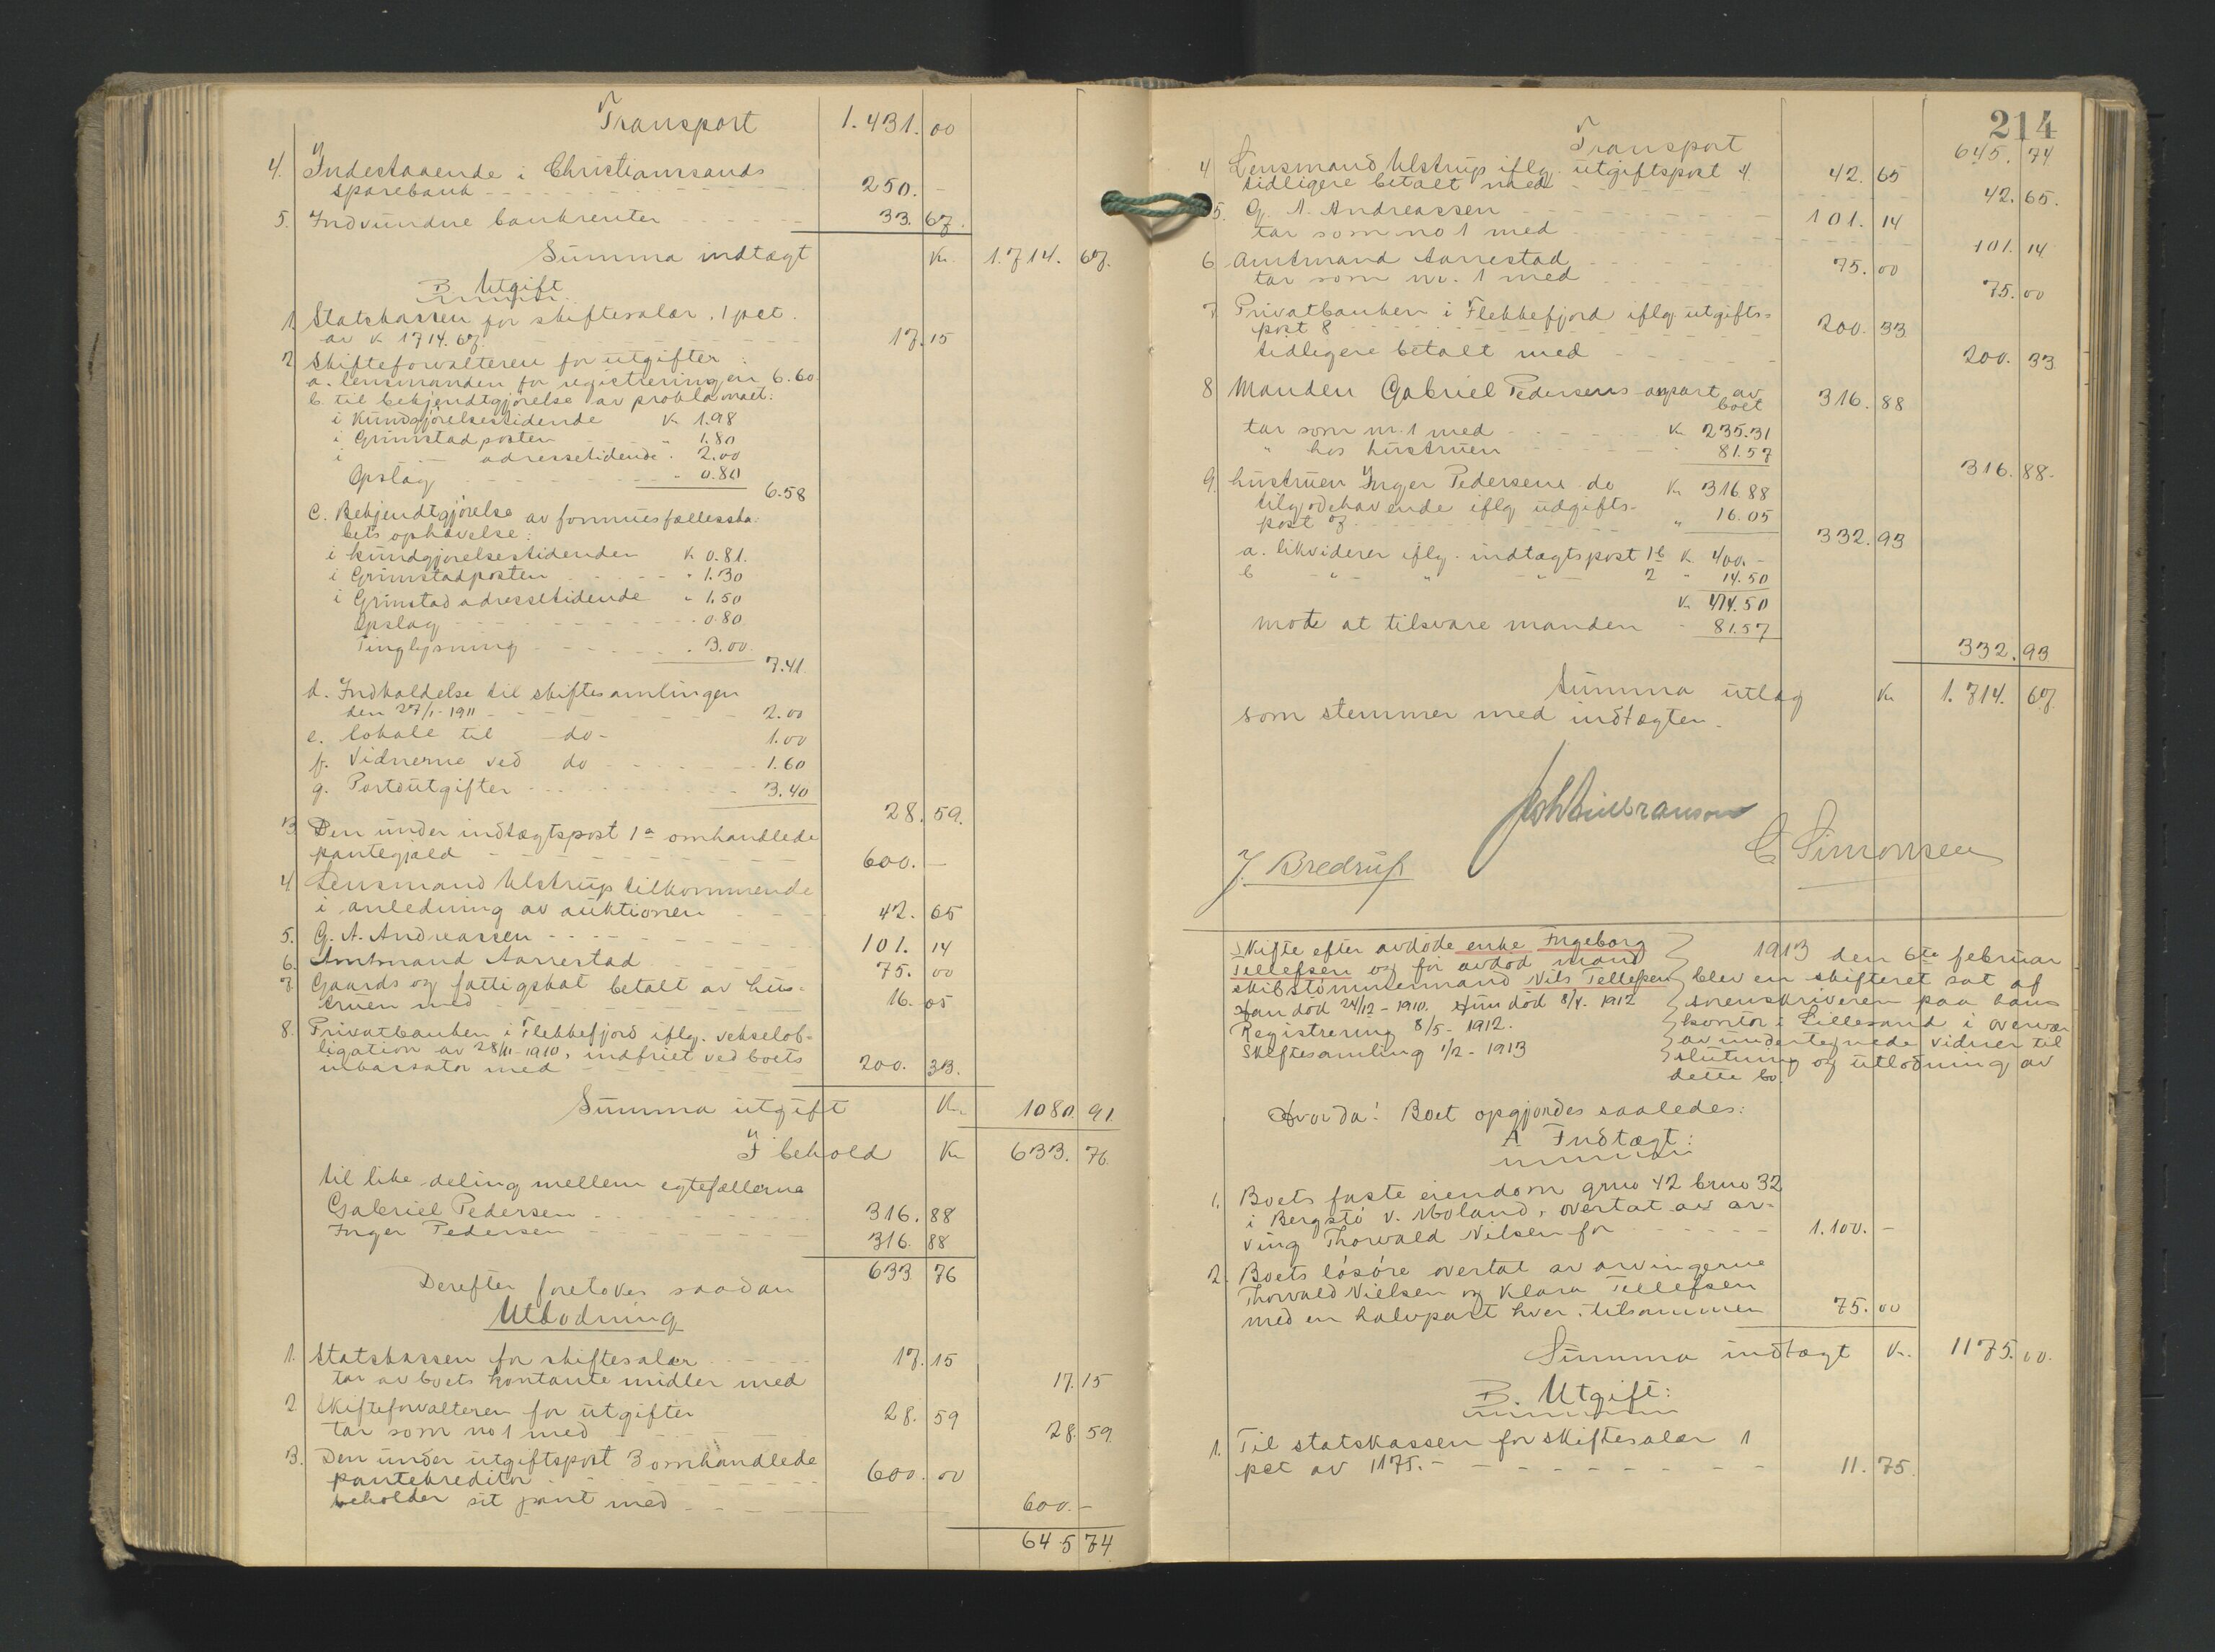 Transport 1.431. 00
4. Indestaaende i Christianssands
sparebank 250. -
5. Indvundne bankrenter 33. 67.
Summa indtægt Kr. 1.714. 67.
B. Utgift
1. Statskassen for skiftesalær, 1 pct.
av k 1714.67 17. 15
2. Skifteforvalteren for utgifter:
a. lensmanden for registreringen 6.60
b. til bekjendtgjørelse av proklamaet:
i Kundgjørelsestidende Kr 1.98
i Grimstadposten " 1.80
i - adressetidende " 2.00
Opslag " 0.80
6.58
c. Bekjendtgjørelse av formuesfællesska-
bets ophævelse:
i kundgjørelsestidenden k 0.81.
i Grimstadposten " 1.30
i Grimstad adressetidende " 1.50
Opslag 0.80
Tinglysning 3.00
7.41
d. Indkaldelse til skiftesamlingen
den 27/1-1911 2.00
e. lokale til do 1.00
f. Vidnerne ved do 1.60
g. Portoutgifter 3.40
28. 59.
3. Den under indtægtspost 1a omhandlede
pantegjæld 600. -
4. Lensmand Ulstrup tilkommende
i anledning av auktionen 42. 65
5. G. A. Andreassen 101. 14
6. Amtmand Aarrestad 75. 00
7. Gaards og fattigskat betalt av hus-
truen med 16. 05
8. Privatbanken i Flekkefjord iflg. vekselob-
ligation av 28/11-1910, indfriet ved boets
inkassator med 200. 33.
Summa utgift Kr. 1080. 91.
I behold Kr 633. 76.
til like deling mellem egtefællerne
Gabriel Pedersen 316. 88
Inger Pedersen 316. 88
633 76
Derefter foretokes saadan
Utlodning
1. Statskassen for skiftesalær 17. 15
tar av boets kontante midler med 17. 15
2. Skifteforvalteren for utgifter 28. 59
tar som no 1 med 28. 59.
3. Den under utgiftspost 3 omhandlede
pantekreditor 600. 00
beholder sit pant med 600. -
645 74
214
Transport 645. 74
4 Lensmand Ulstrup iflg. utgiftspost 4 42. 65
tidligere betalt med 42. 65.
5. G. A. Andreassen 101. 14
tar som no 1 med 101. 14
6 Amtmand Aarrestad 75. 00
tar som nr. 1 med 75. 00
7 Privatbanken i Flekkefjord iflg utgifts-
post 8 200. 33
tidligere betalt med 200. 33
8 Manden Gabriel Pedersens anpart av
boet 316. 88
tar som nr. 1 med K 235.31
" hos hustruen " 81.57
316. 88.
9. hustruen Inger Pedersens do Kr 316.88
tilgodehavende iflg udgifts-
post 7 " 16.05
332. 93
a. likviderer iflg. indtægtspost 1b K 400. -
b - " - " - " - 2 - 14.50
Kr 414.50
mot at tilsvare manden - 81.57
332. 93
Summa utlag Kr 1.714. 67
som stemmer med indtægten.
J. Bredrup
C Simonsen
Skifte efter avdøde enke Ingeborg
Tellefsen og før avdød mand
skibstømmermand Nils Tellefsen
Han død 24/12-1910. Hun død 8/4. 1912
Registrering 8/5-1912.
Skiftesamling 1/2-1913
1913 den 6te februar
blev en skifteret sat af
sorenskriveren paa hans
kontor i Lillesand i overvær
av undertegnede vidner til
slutning og utlodning av
dette bo.
Hvorda: Boet opgjordes saaledes:
A Indtægt:
1. Boets faste eiendom gno 42 bno 32
i Bergstø v. Moland, overtat av ar-
ving Thorvald Nilsen for 1.100. -
2. Boets løsøre overtat av arvingerne
Thorvald Nielsen og Klara Tellefsen
med en halvpart hver, tilsammen 75. 00
Summa indtægt Kr. 1175. 00.
B. Utgift:
1. Til statskassen for skiftesalær 1
pct av 1175. - 11. 75.